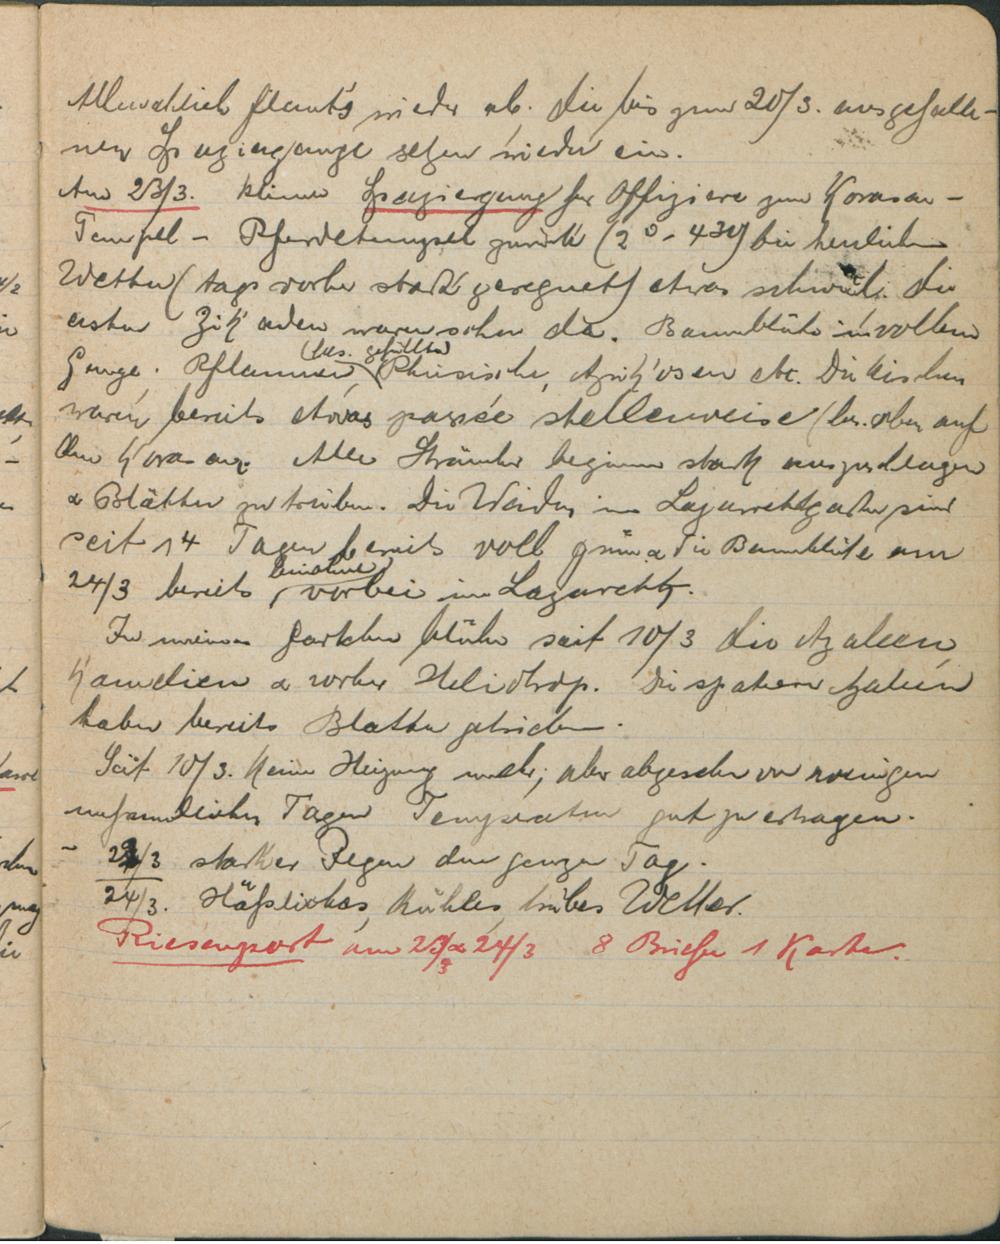 Allmählich flaut's wieder ab. Die bis zum 20/3. ausgefalle-
nen Spaziergänge setzen wieder ein.
Am 23/3. kleiner Spaziergang für Offiziere zum Korasan-
Tempel - Pferdetempel zurück (2⁰ - 4³⁰) bei herrlichem
Wetter (tags vorher stark geregnet) etwas schwül. Die
ersten Zikaden waren schon da. Baumblüte in vollem
Gange. Pflaumen, (bes. gefüllte) Pfirsische, Aprikosen etc. Die Kirschen
waren bereits etwas passée stellenweise (bes. oben auf
dem Korasan. Alle Sträucher beginnen stark auszuschlagen
& Blätter zu treiben. Die Weiden im Lazarettgarten sind
seit 14 Tagen bereits voll grün & die Baumblüte am
24/3 bereits beinahe vorbei im Lazarett.
In meinem Gärtchen blühen seit 10/3 die Azaleen,
Kamelien & vorher Heliotrop. Die späteren Azaleen
haben bereits Blätter getrieben.
Seit 10/3. keine Heizung mehr, aber abgesehen von wenigen
unfreundlichen Tagen Temperatur gut zu ertragen.
- 2/3 starker Regen den ganzen Tag.
24/3. Häßliches, kühles, trübes Wetter.
Riesenpost am 23/3 & 24/3 8 Briefe 1 Karte.